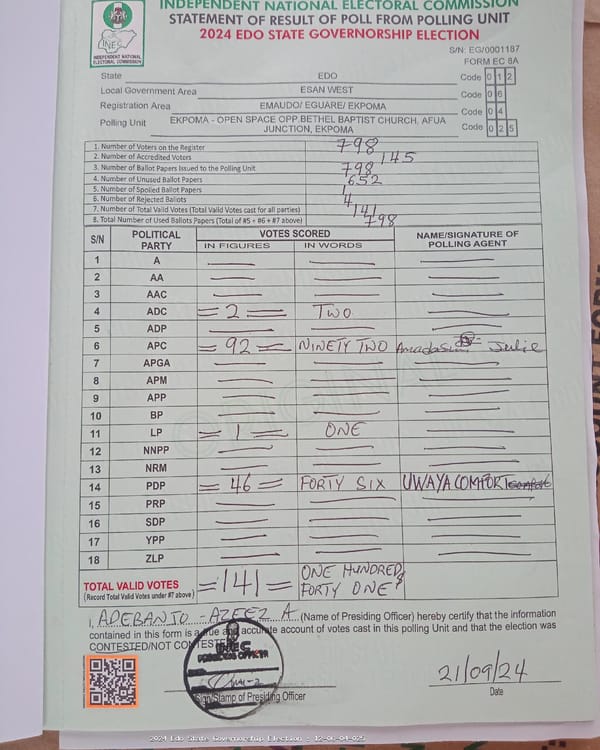 INDEPENDENT NATIONAL ELECTORAL COMMISSION
STATEMENT OF RESULT OF POLL FROM POLLING UNIT
2024 EDO STATE GOVERNORSHIP ELECTION
INEC
INDEPENDENT NATIONAL
ELECTORAL COMMISSION
S/N: EG/0001187
FORM EC 8A
State EDO Code 0 1 2
Local Government Area ESAN WEST Code 0 6
Registration Area EMAUDO/ EGUARE/ EKPOMA Code 0 4
Polling Unit EKPOMA - OPEN SPACE OPP.BETHEL BAPTIST CHURCH, AFUA JUNCTION, EKPOMA Code 0 2 5
1. Number of Voters on the Register 798
2. Number of Accredited Voters 145
3. Number of Ballot Papers Issued to the Polling Unit 798
4. Number of Unused Ballot Papers 652
5. Number of Spoiled Ballot Papers 1
6. Number of Rejected Ballots 4
7. Number of Total Valid Votes (Total Valid Votes cast for all parties) 141
8. Total Number of Used Ballots Papers (Total of #5 + #6 + #7 above) 798
S/N POLITICAL PARTY VOTES SCORED NAME/SIGNATURE OF POLLING AGENT
IN FIGURES IN WORDS
1 A
2 AA
3 AAC
4 ADC = 2 = TWO
5 ADP
6 APC = 92 = NINETY TWO Julie
7 APGA
8 APM
9 APP
10 BP
11 LP = 1 = ONE
12 NNPP
13 NRM
14 PDP = 46 = FORTY SIX UWAYA COMFORT
15 PRP
16 SDP
17 YPP
18 ZLP
TOTAL VALID VOTES = 141 = ONE HUNDRED & FORTY ONE
(Record Total Valid Votes under #7 above)
I, ADEBANTO - AZEEZ A (Name of Presiding Officer) hereby certify that the information
contained in this form is a true and accurate account of votes cast in this polling Unit and that the election was
CONTESTED/NOT CONTESTED
INEC
PRESIDING OFFICER
Sign/Stamp of Presiding Officer
21/09/24
Date
2024 Edo State Governorship Election - 12-06-04-025